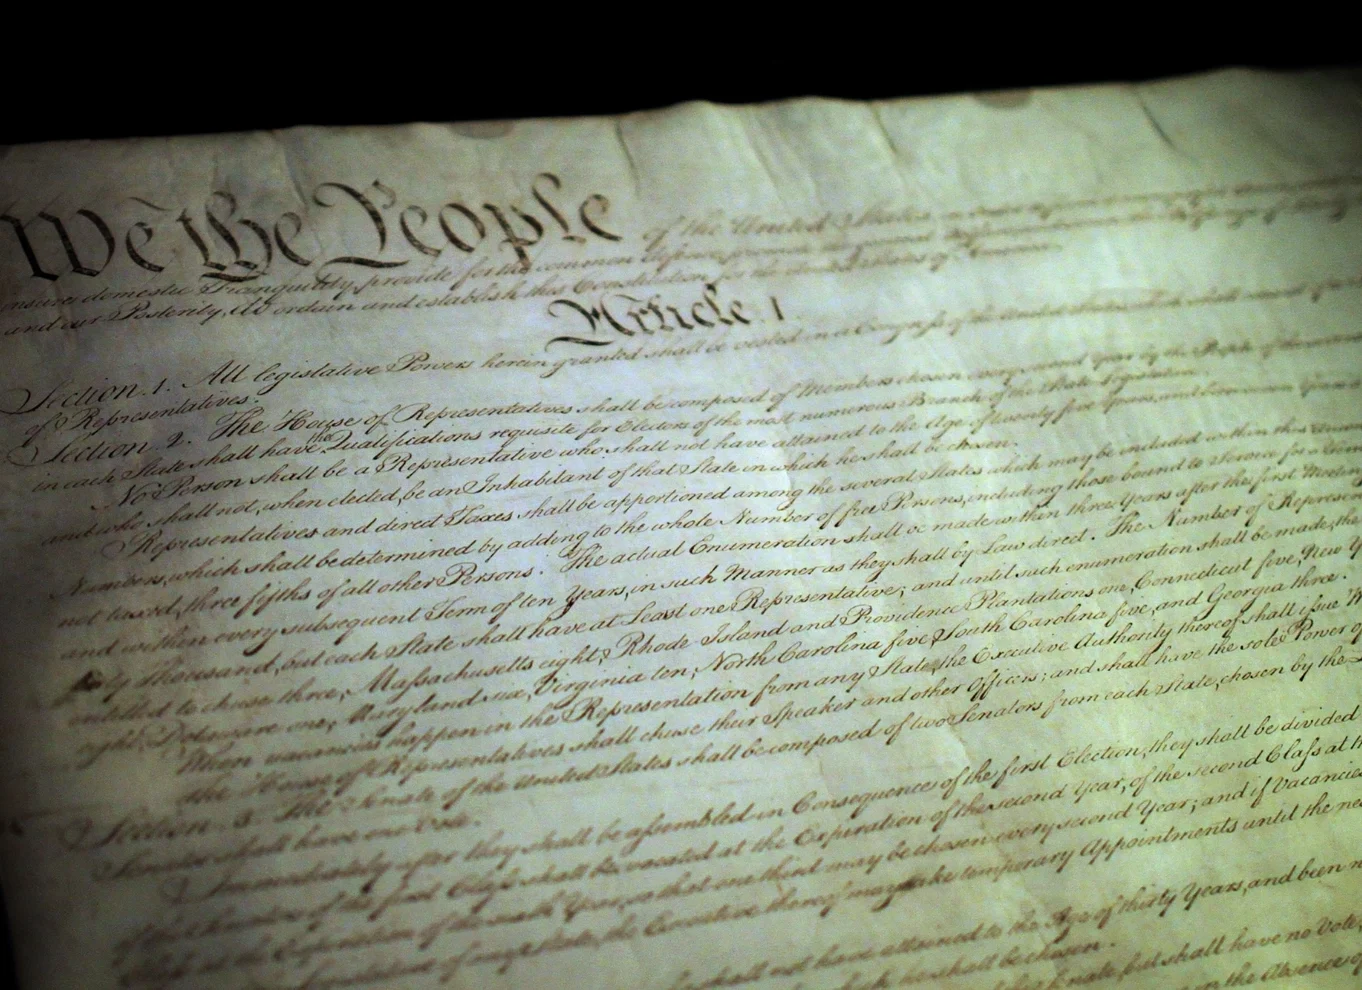 We the People of the United States
insure domestic Tranquility, provide for the common defence,
and our Posterity, do ordain and establish this Constitution for the United States of America.
Article. I.
Section. 1. All legislative Powers herein granted shall be vested in a Congress of the United States, which shall consist of
of Representatives.
Section. 2. The House of Representatives shall be composed of Members chosen every second Year by the People of the several
in each State shall have the Qualifications requisite for Electors of the most numerous Branch of the State Legislature.
No Person shall be a Representative who shall not have attained to the Age of twenty five Years, and been seven Years
and who shall not, when elected, be an Inhabitant of that State in which he shall be chosen.
Representatives and direct Taxes shall be apportioned among the several States which may be included within this Union,
Numbers, which shall be determined by adding to the whole Number of free Persons, including those bound to Service for a Term
not taxed, three fifths of all other Persons. The actual Enumeration shall be made within three Years after the first Meeting
and within every subsequent Term of ten Years, in such Manner as they shall by Law direct. The Number of Represen
thirty Thousand, but each State shall have at Least one Representative; and until such enumeration shall be made, the
entitled to chuse three, Massachusetts eight, Rhode Island and Providence Plantations one, Connecticut five, New Y
eight, Delaware one, Maryland six, Virginia ten, North Carolina five, South Carolina five, and Georgia three.
When vacancies happen in the Representation from any State, the Executive Authority thereof shall issue W
The House of Representatives shall chuse their Speaker and other Officers; and shall have the sole Power of
Section. 3. The Senate of the United States shall be composed of two Senators from each State, chosen by the
Senator shall have one Vote.
Immediately after they shall be assembled in Consequence of the first Election, they shall be divided
of the Senators of the first Class shall be vacated at the Expiration of the second Year, of the second Class at th
Class at the Expiration of the sixth Year, so that one third may be chosen every second Year; and if Vacancies
Legislature of any State, the Executive thereof may make temporary Appointments until the ne
shall not have attained to the Age of thirty Years, and been n
he shall be chosen.
Senate, but shall have no Vote,
in the Absence of